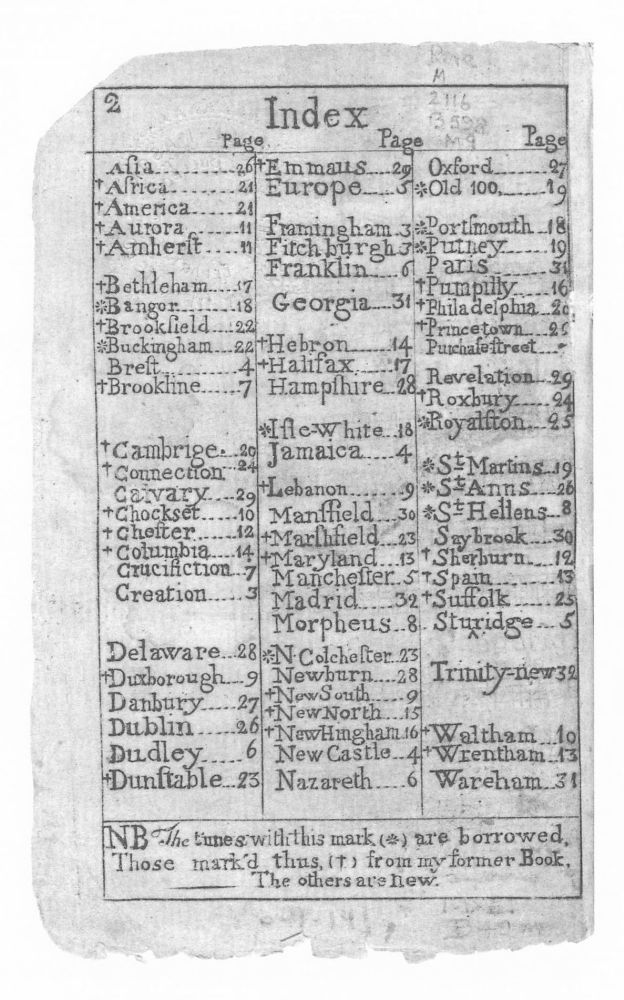 2
Index
Page
Asia 26
†Africa 21
†America 21
†Aurora 11
†Amherſt 11
†Bethleham 17
※Bangor 18
†Brookfield 22
※Buckingham 22
Breſt 4
†Brookline 7
†Cambrige 20
†Connection 24
Calvary 29
†Chockset 10
†Cheſter 12
†Columbia 14
Crucifiction 7
Creation 3
Delaware 28
†Duxborough 9
Danbury 27
Dublin 26
Dudley 6
†Dunſtable 23
Page
†Emmaus 29
Europe 5
Framingham 3
Fitchburgh 3
Franklin 6
Georgia 31
†Hebron 14
†Halifax 17
Hampſhire 28
※Iſle-White 18
Jamaica 4
†Lebanon 9
Manſfield 30
†Marſhfield 23
†Maryland 13
Mancheſter 5
Madrid 32
Morpheus 8
※N. Colcheſter 23
Newburn 28
†New South 9
†New North 15
†New Hingham 16
New Castle 4
Nazareth 6
Page
Oxford 27
※Old 100 19
※Portſmouth 18
※Putney 19
Paris 31
†Pumpilly 16
†Philadelphia 20
†Princetown
Purchaſe ſtreet
Revelation 29
†Roxbury 24
※Royalſton 25
※St. Martins 19
※St. Anns 26
※St. Hellens 8
Saybrook 30
†Sherburn 12
†Spain 13
†Suffolk 25
Sturidge 5
Trinity-new 32
†Waltham 10
†Wrentham 13
Wareham 31
NB The tunes with this mark (※) are borrowed,
Those mark'd thus, (†) from my former Book,
The others are New.